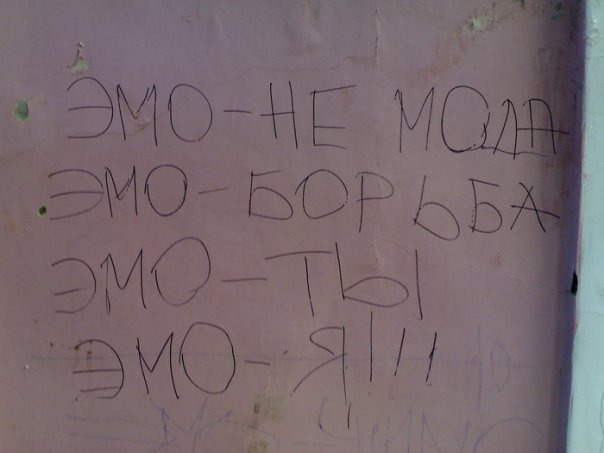 ЭМО - НЕ МОДА
ЭМО - БОРЬБА
ЭМО - ТЫ
ЭМО - Я!!!